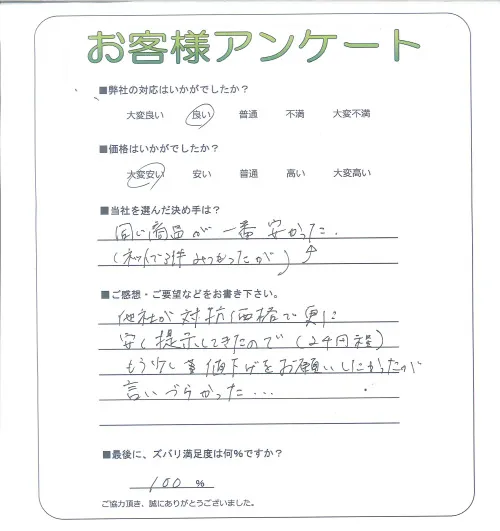 お客様アンケート
■弊社の対応はいかがでしたか?
大変良い 良い 普通 不満 大変不満
■価格はいかがでしたか?
大変安い 安い 普通 高い 大変高い
■当社を選んだ決め手は?
同じ商品が一番安かった.
(ネットで3件みつかったが)
■ご感想・ご要望などをお書き下さい。
他社が対抗価格で更に
安く提示してきたので(24円程)
もう少し 値下げをお願いしたかったが
言いづらかった...
■最後に、ズバリ満足度は何%ですか?
100 %
ご協力頂き、誠にありがとうございました。